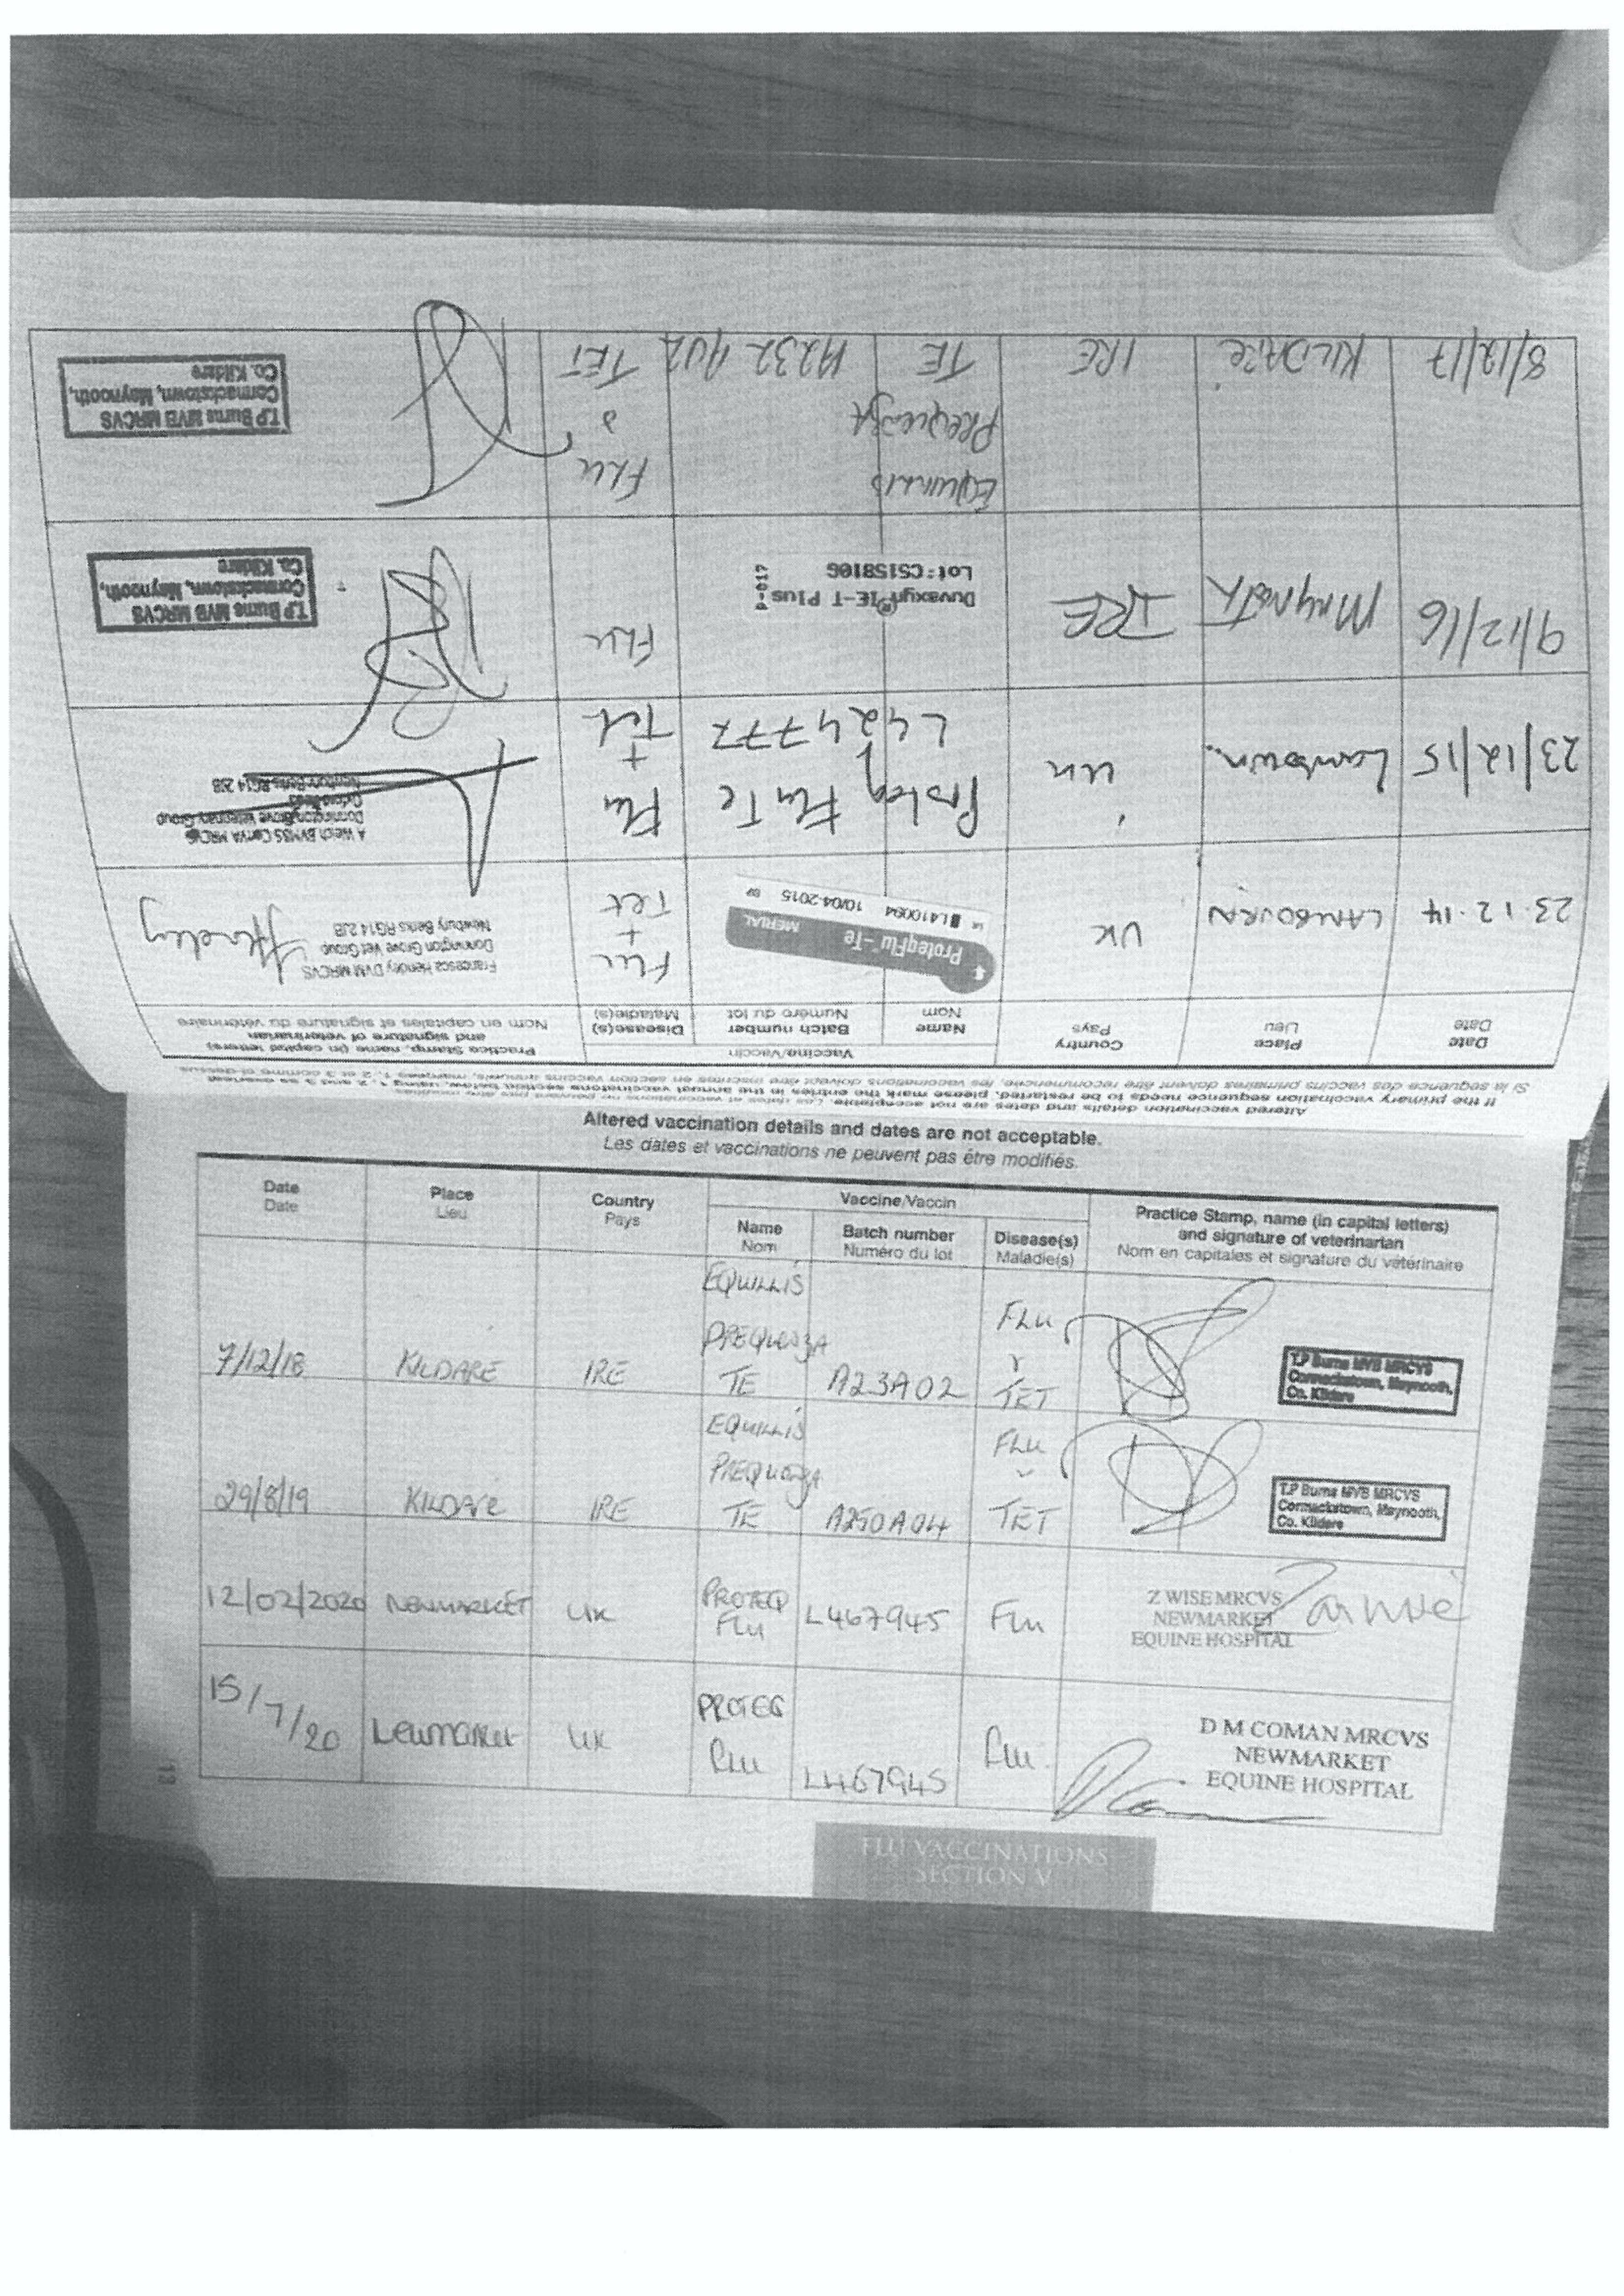 Altered vaccination details and dates are not acceptable. Les dates et vaccinations ne peuvent pas être modifiés.
If the primary vaccination sequence needs to be restarted, please mark the entries in the annual vaccinations section below, using 1, 2 and 3 as overleaf
Si la séquence des vaccins primaires doivent être recommencée, les vaccinations doivent être inscrites en section vaccins annuels, marquées 1, 2 et 3 comme ci-dessus
Vaccine/Vaccin
Date Place Country Name Batch number Disease(s) Practice Stamp, name (in capital letters)
and signature of veterinarian
Date Lieu Pays Nom Numéro du lot Maladie(s) Nom en capitales et signature du vétérinaire
23.12.14 LAMBOURN UK Flu + Tet
ProteqFlu-Te MERIAL
L410094 10/04-2015
Francesca Hendry DVM MRCVS
Donnington Grove Vet Group
Newbury Berks RG14 2JB
23/12/15 Lambourn UK Proteq Flu Te L424777 Flu + Tet
A Welch BVMSS CertVA MRCVS
Donnington Grove Veterinary Group
Oxford Road
Newbury Berks RG14 2JB
9/12/16 MAYNOOTH IRE Flu
Duvaxyn® IE-T Plus
Lot: C515810G
P-017
T.P Burns MVB MRCVS
Cormackstown, Maynooth,
Co. Kildare
8/12/17 KILDARE IRE EQUILLIS PREQUENZA TE A232A02 FLU & TET
T.P Burns MVB MRCVS
Cormackstown, Maynooth,
Co. Kildare
Altered vaccination details and dates are not acceptable.
Les dates et vaccinations ne peuvent pas être modifiés.
Date Place Country Vaccine/Vaccin Practice Stamp, name (in capital letters)
Date Lieu Pays Name Batch number Disease(s) and signature of veterinarian
Nom Numéro du lot Maladie(s) Nom en capitales et signature du vétérinaire
EQUILLIS
7/12/18 KILDARE IRE PREQUENZA TE A23A02 FLU TET
T.P Burns MVB MRCVS
Cormackstown, Maynooth,
Co. Kildare
EQUILLIS
29/8/19 KILDARE IRE PREQUENZA TE A250A04 FLU TET
T.P Burns MVB MRCVS
Cormackstown, Maynooth,
Co. Kildare
12/02/2020 NEWMARKET UK PROTEQ Flu L467945 Flu
Z WISE MRCVS
NEWMARKET
EQUINE HOSPITAL
15/7/20 Newmarket UK PROTEQ Flu L467945 Flu
D M COMAN MRCVS
NEWMARKET
EQUINE HOSPITAL
13
FLU VACCINATIONS
SECTION V